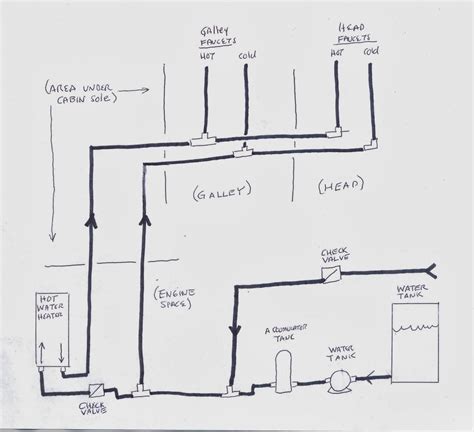 Galley
FAUCETS
HOT
Cold
HEAD
FAUCETS
HOT
Cold
(AREA UNDER
CABIN SOLE)
(GALLEY)
(HEAD)
(ENGINE
SPACE)
CHECK
VALVE
WATER
TANK
HOT
WATER
HEATER
ACCUMULATER
TANK
WATER
TANK
CHECK
VALVE